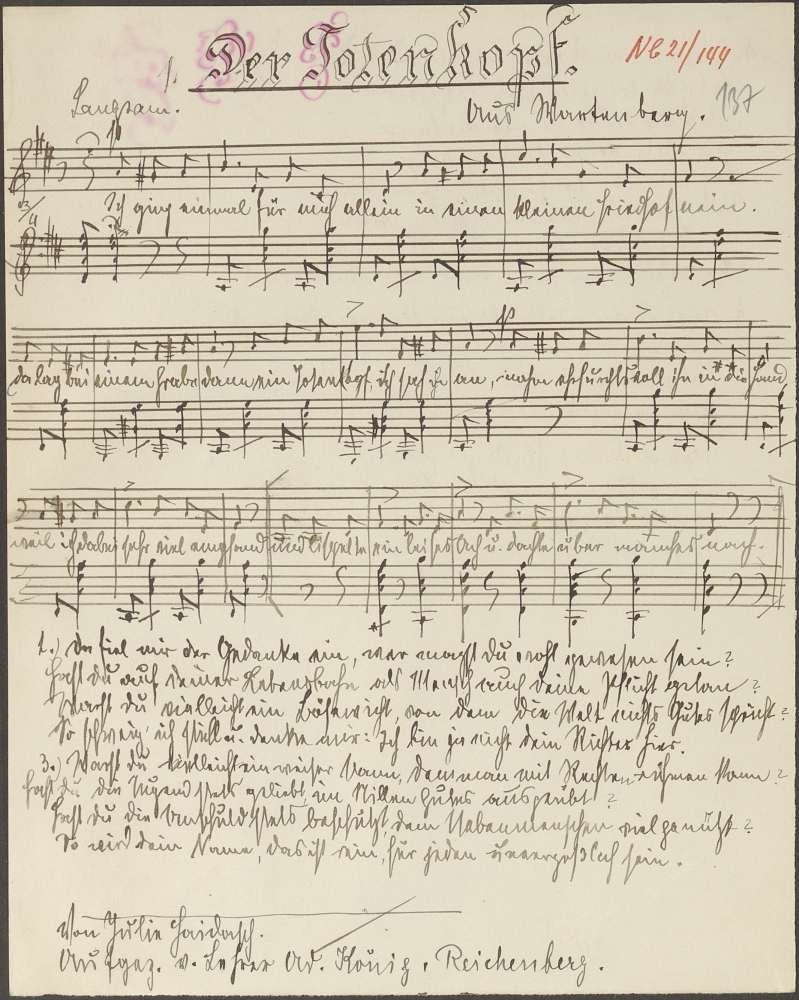 1. Der Totenkopf.
NB 21/144
Langsam.
Aus Wartenberg. 137
3/4
Ich ging einmal für mich allein in einen kleinen Friedhof nein.
da lag bei einem Grabe dann ein Totenkopf, ich sah ihn an, nahm ehrfurchtsvoll ihn in die Hand
weil ich dabei sehr viel empfand und lispelte ein leises Ach u. dachte über manches nach.
2.) Da fiel mir der Gedanke ein, wer magst Du wohl gewesen sein?
Hast Du auf deiner Lebensbahn als Mensch auch deine Pflicht getan?
Warst du vielleicht ein Bösewicht, von dem die Welt nichts Gutes spricht?
So schweig' ich still u. denke mir: Ich bin ja nicht dein Richter hier.
3.) Warst du vielleicht ein weiser Mann, dem man mit Rechten rühmen kann?
Hast du die Tugend stets geliebt, im Stillen Gutes ausgeübt?
Hast du die Unschuld stets beschützt, dem Nebenmenschen viel genützt?
So wird dein Name, das ist rein, für jeden unvergeßlich sein.
Von Julie Haidasch.
Aufgez. v. Lehrer Ad. König, Reichenberg.